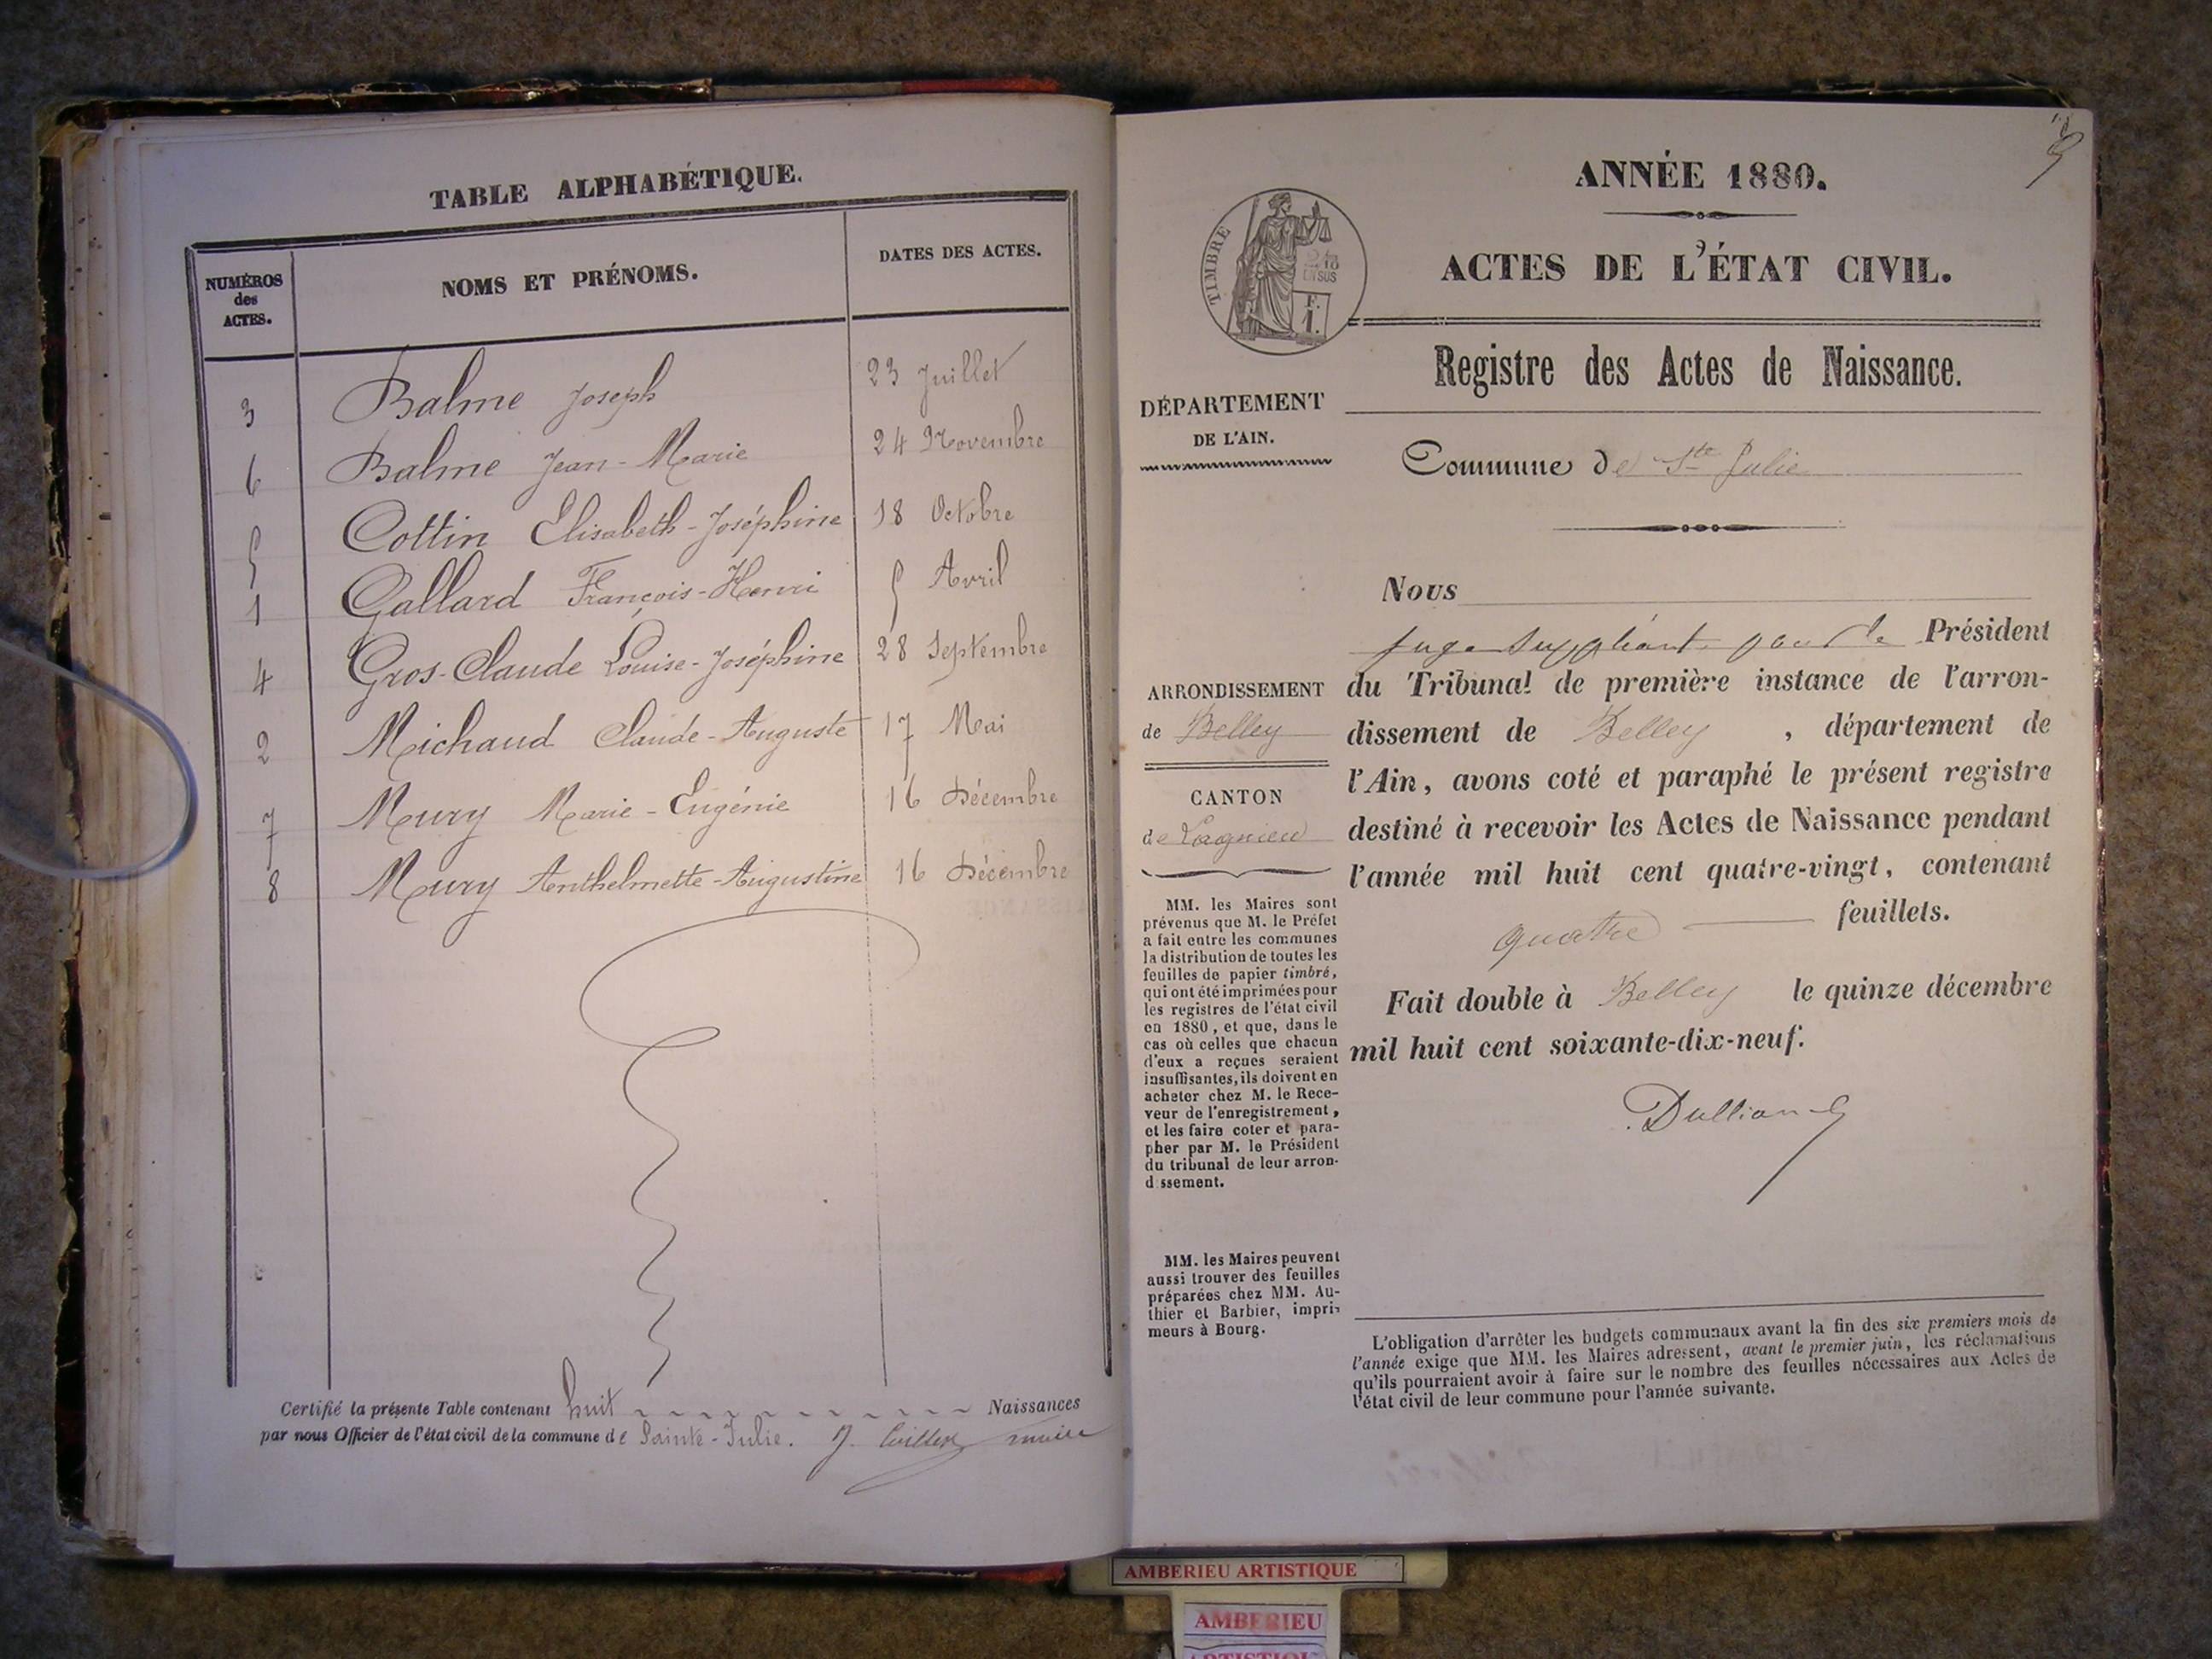 TABLE ALPHABÉTIQUE.
NUMÉROS
des
ACTES.
NOMS ET PRÉNOMS.
DATES DES ACTES.
3 Balme Joseph 23 Juillet
6 Balme Jean-Marie 24 Novembre
5 Cottin Elisabeth-Joséphine 18 Octobre
1 Gallard François-Henri 5 Avril
4 Gros-Claude Louise-Joséphine 28 Septembre
2 Michaud Claude-Auguste 17 Mai
7 Moury Marie-Eugénie 16 Décembre
8 Moury Anthelmette-Augustine 16 Décembre
Certifié la présente Table contenant huit Naissances
par nous Officier de l'état civil de la commune de Sainte-Julie. maire
ANNÉE 1880.
TIMBRE
EN SUS
F.
1.
ACTES DE L'ÉTAT CIVIL.
Registre des Actes de Naissance.
DÉPARTEMENT
DE L'AIN.
Commune de Ste Julie
Nous
Juge suppléant pour le Président
du Tribunal de première instance de l'arron-
dissement de Belley, département de
l'Ain, avons coté et paraphé le présent registre
destiné à recevoir les Actes de Naissance pendant
l'année mil huit cent quatre-vingt, contenant
quatre feuillets.
Fait double à Belley le quinze décembre
mil huit cent soixante-dix-neuf.
ARRONDISSEMENT
de Belley
CANTON
de Lagnieu
MM. les Maires sont
prévenus que M. le Préfet
a fait entre les communes
la distribution de toutes les
feuilles de papier timbré,
qui ont été imprimées pour
les registres de l'état civil
en 1880, et que, dans le
cas où celles que chacun
d'eux a reçues seraient
insuffisantes, ils doivent en
acheter chez M. le Rece-
veur de l'enregistrement,
et les faire coter et para-
pher par M. le Président
du tribunal de leur arron-
d ssement.
MM. les Maires peuvent
aussi trouver des feuilles
préparées chez MM. Au-
thier et Barbier, impri-
meurs à Bourg.
L'obligation d'arrêter les budgets communaux avant la fin des six premiers mois de
l'année exige que MM. les Maires adressent, avant le premier juin, les réclamations
qu'ils pourraient avoir à faire sur le nombre des feuilles nécessaires aux Actes de
l'état civil de leur commune pour l'année suivante.
AMBERIEU ARTISTIQUE
AMBERIEU
ARTISTIQUE